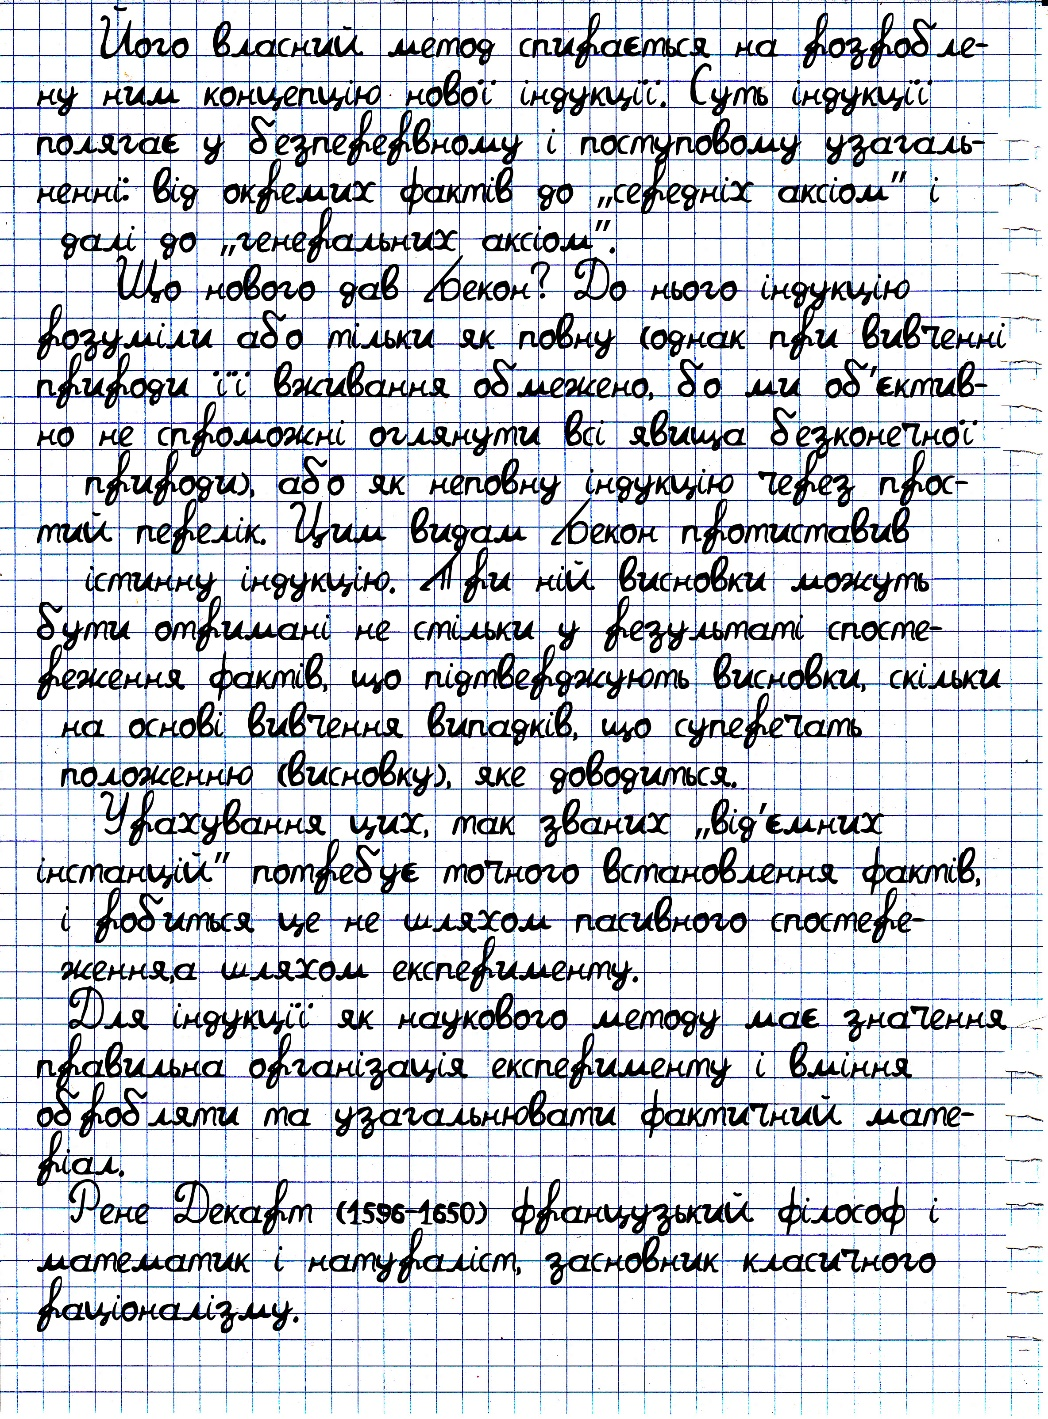 Його власний метод спирається на розробле-
ну ним концепцію нової індукції. Суть індукції
полягає у безперервному і поступовому узагаль-
ненні: від окремих фактів до „середніх аксіом" і
далі до „генеральних аксіом".
Що нового дав Бекон? До нього індукцію
розуміли або тільки як повну (однак при вивченні
природи її вживання обмежено, бо ми об'єктив-
но не спроможні оглянути всі явища безконечної
природи), або як неповну індукцію через прос-
тий перелік. Цим видам Бекон протиставив
істинну індукцію. При ній висновки можуть
бути отримані не стільки у результаті спосте-
реження фактів, що підтверджують висновки, скільки
на основі вивчення випадків, що суперечать
положенню (висновку), яке доводиться.
Урахування цих, так званих „від'ємних
інстанцій" потребує точного встановлення фактів,
і робиться це не шляхом пасивного спостере-
ження,а шляхом експерименту.
Для індукції як наукового методу має значення
правильна організація експерименту і вміння
обробляти та узагальнювати фактичний мате-
ріал.
Рене Декарт (1596-1650) французький філософ і
математик і натураліст, засновник класичного
раціоналізму.